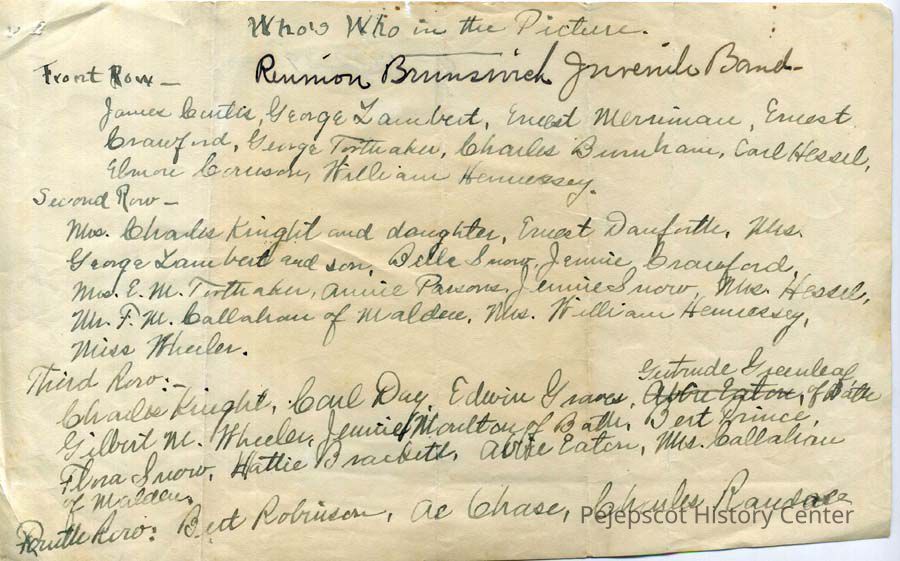 Who's Who in the Picture.
Front Row — Reunion Brunswick Juvenile Band —
James Curtis, George Lambert, Ernest Merriman, Ernest
Crawford, George Tothaker, Charles Burnham, Carl Hessel,
Elmore William Hennessey.
Second Row —
Mrs. Charles Knight and daughter, Ernest Danforth, Mrs.
George Lambert and son, Belle Snow, Jennie Crawford,
Mrs. E. M. Tothaker, Annie Parsons, Jennie Snow, Mrs. Hessel,
Mr. F. M. Callahan of Malden, Mrs. William Hennessey,
Miss Wheeler.
Third Row:- Gertrude Greenleaf
Charles Knight, Carl Day, Edwin Graves, Abbie Eaton, of Bath
Gilbert M. Wheeler, Jennie Moulton of Bath, Bert Prince,
Flora Snow, Hattie Brackett, Abbie Eaton, Mrs. Callahan
of Malden.
Fourth Row: Bert Robinson, Al Chase, Charles Randall
Pejepscot History Center